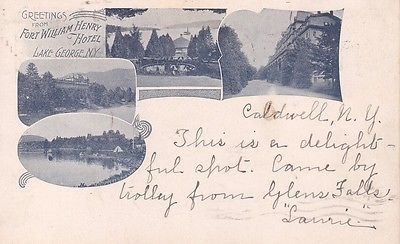 GREETINGS
FROM
FORT WILLIAM HENRY
HOTEL
LAKE GEORGE, N.Y.
Caldwell, N. Y.
This is a delight-
ful spot. Came by
trolley from Glens Falls.
"Laurie"